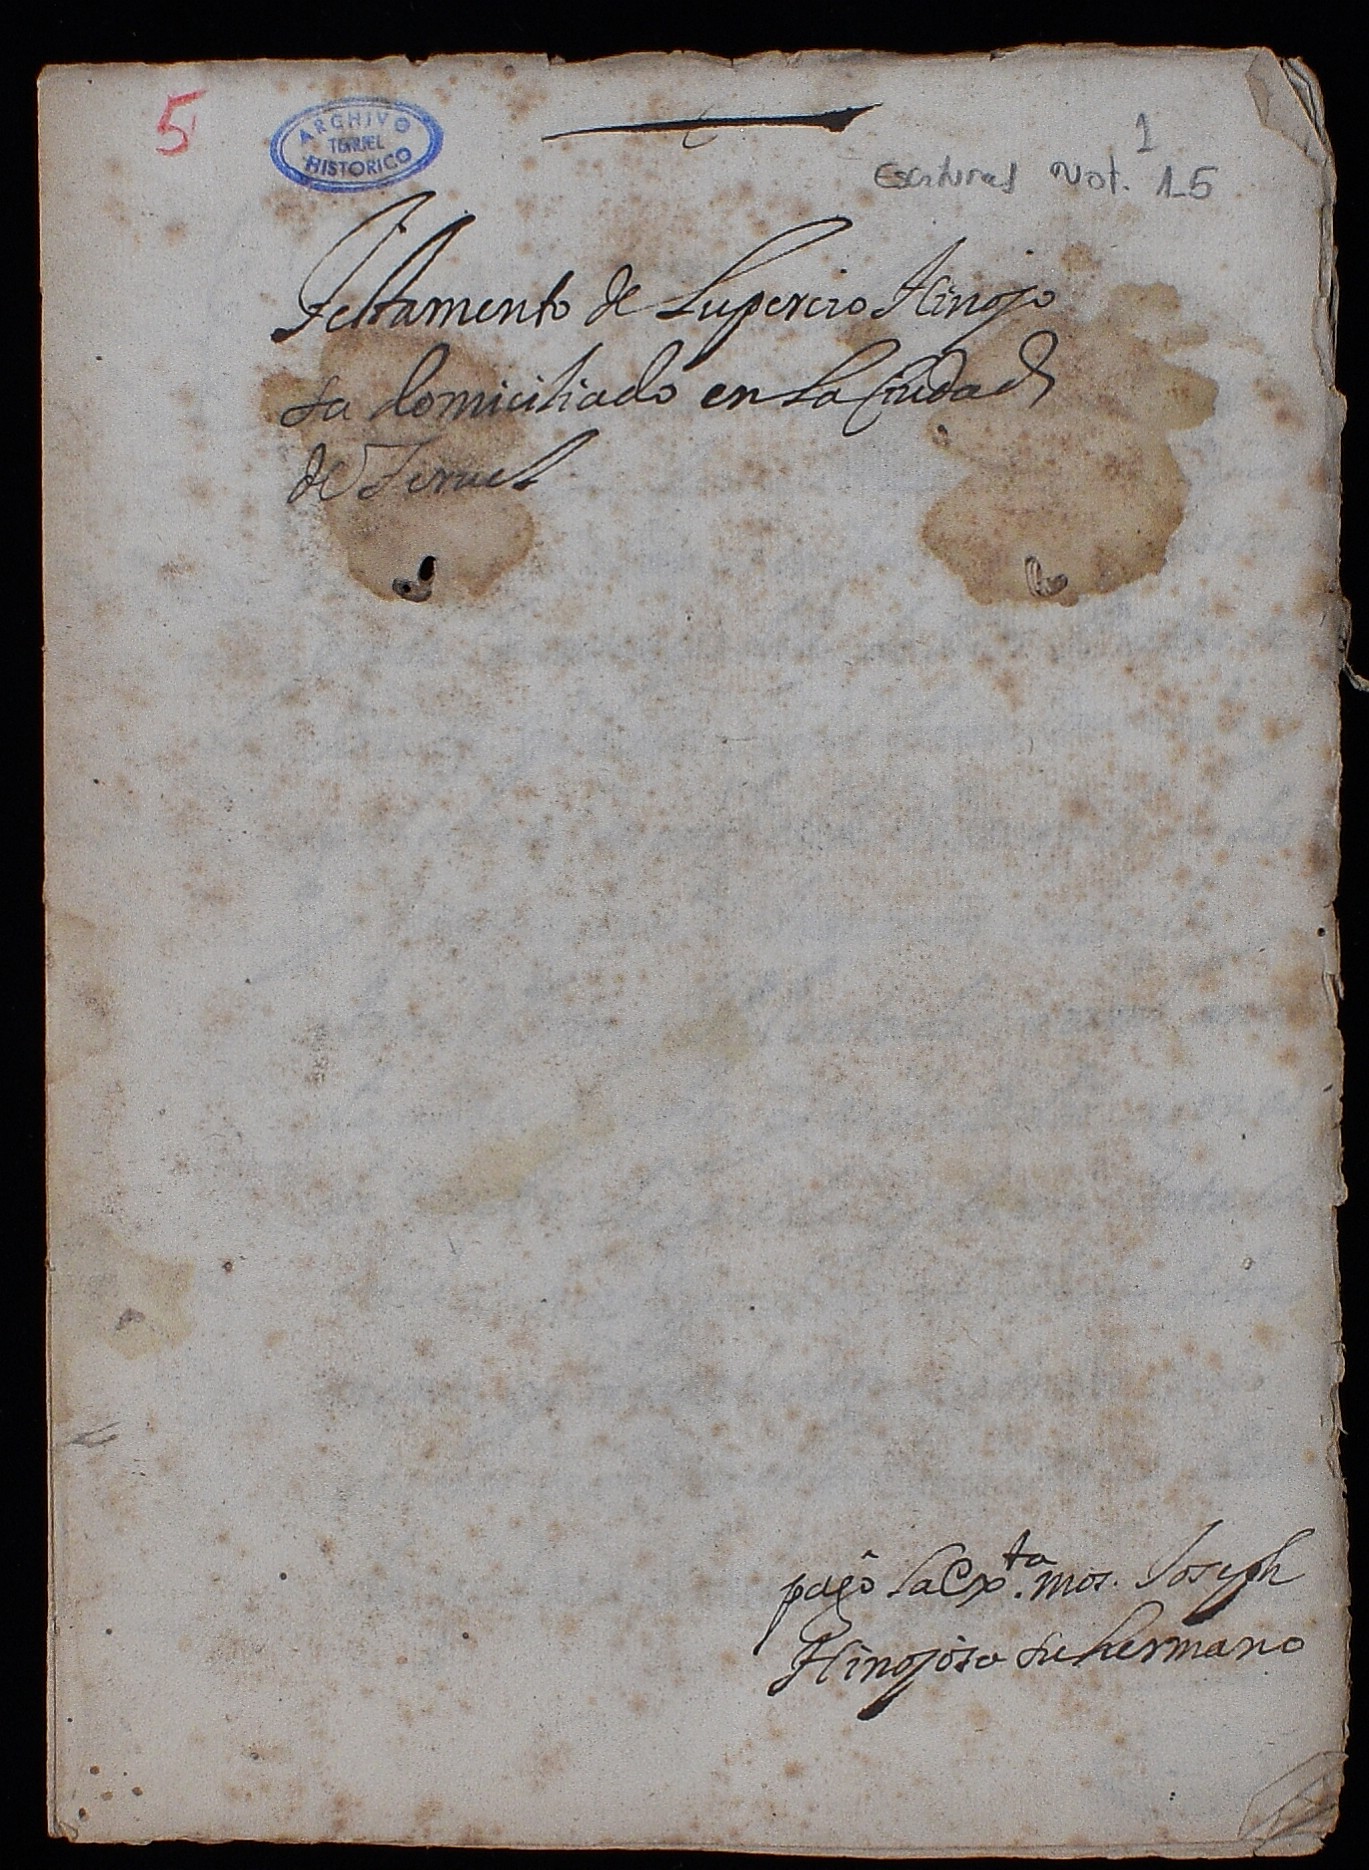 5
ARCHIVO
TERUEL
HISTORICO
1
Escrituras Not. 15
Testamento de Lupercio Hinojo
sa domiciliado en la Ciudad
de Teruel
pagô la Exta. mos. Joseph
Hinojosa su hermano